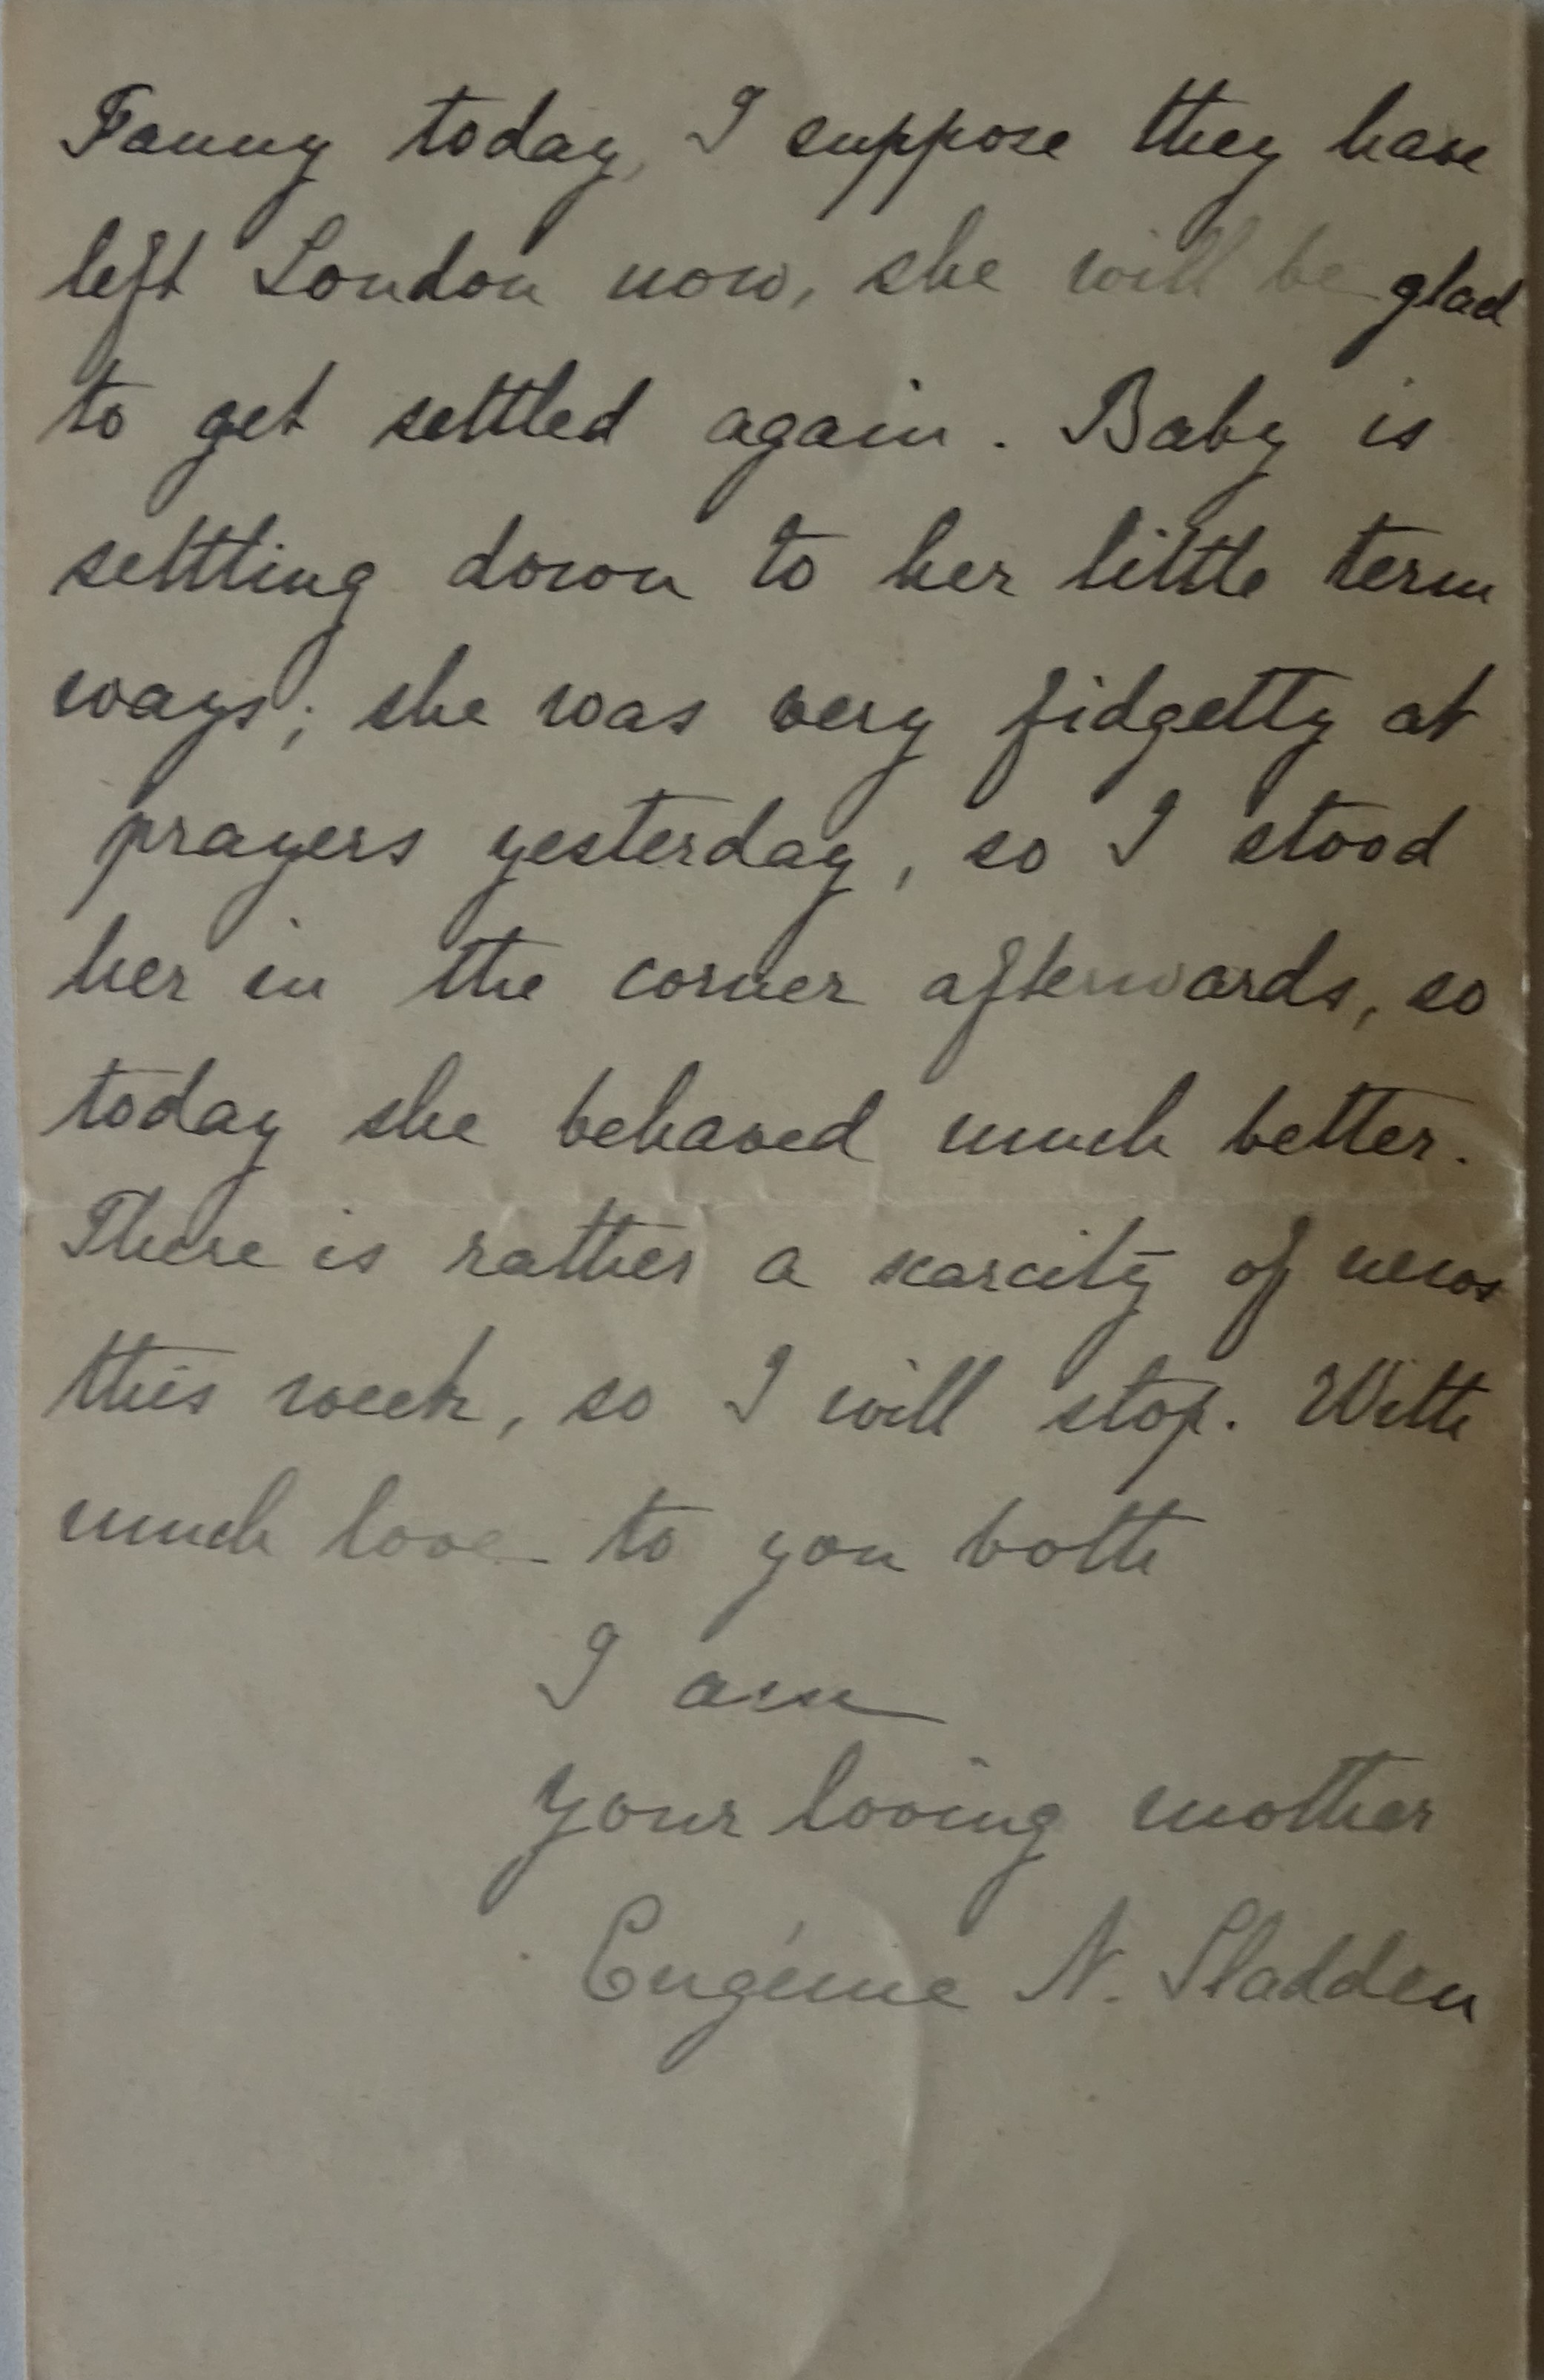 Fanny today, I suppose they have
left London now, she will be glad
to get settled again. Baby is
settling down to her little term
ways; she was very fidgetty at
prayers yesterday, so I stood
her in the corner afterwards, so
today she behaved much better.
There is rather a scarcity of news
this week, so I will stop. With
much love to you both
I am
your loving mother
Eugénie N. Sladden